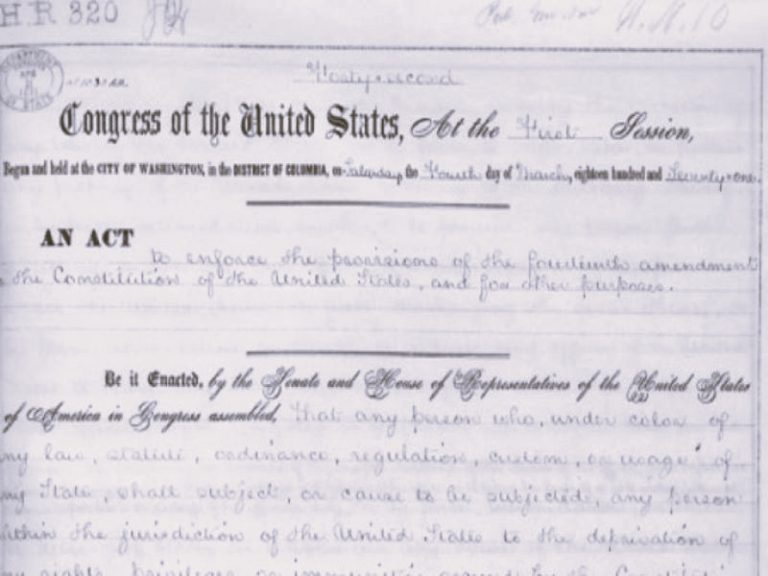 H R 320
Forty-second
Congress of the United States, At the First Session,
Begun and held at the CITY OF WASHINGTON, in the DISTRICT OF COLUMBIA, on Saturday, the Fourth day of March, eighteen hundred and Seventy-one.
AN ACT
to enforce the provisions of the fourteenth amendment
the Constitution of the United States, and for other purposes.
Be it Enacted, by the Senate and House of Representatives of the United States
of America in Congress assembled, That any person who, under color of
ny law, statute, ordinance, regulation, custom, or usage of
ny State, shall subject, or cause to be subjected, any person
ithin the jurisdiction of the United States to the deprivation of
ny rights, privileges, or immunities